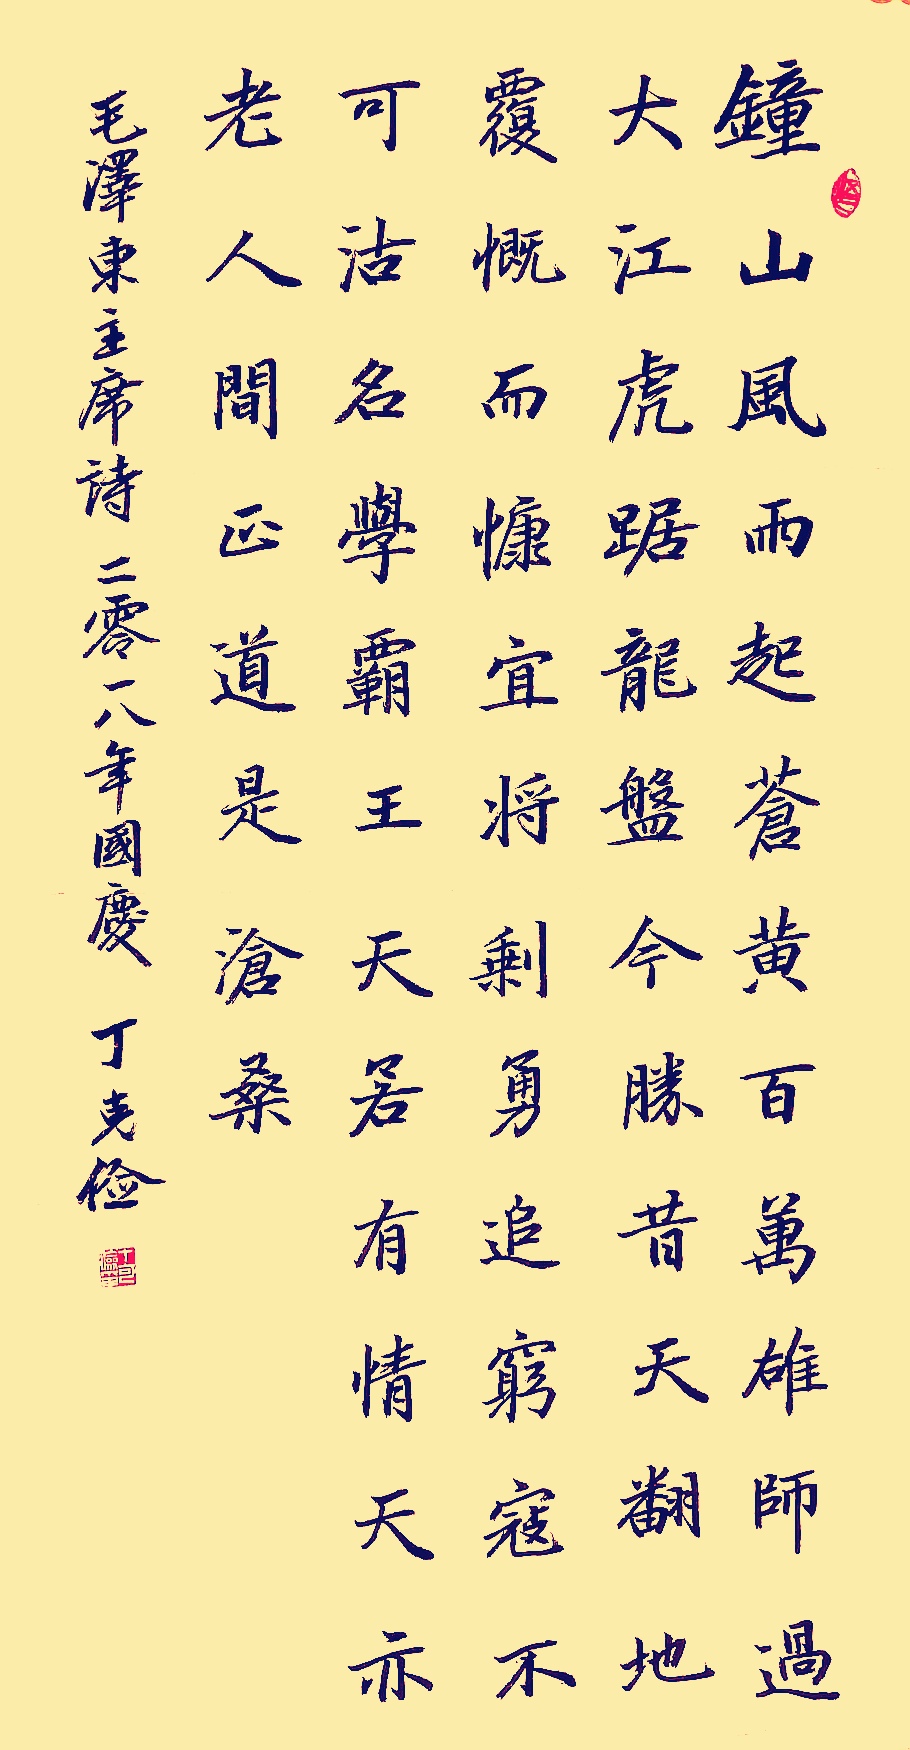 鐘山風雨起蒼黄百萬雄師過
大江虎踞龍盤今勝昔天翻地
覆慨而慷宜将剩勇追窮寇不
可沽名學霸王天若有情天亦
老人間正道是滄桑
毛澤東主席詩 二零一八年國慶 丁克俭